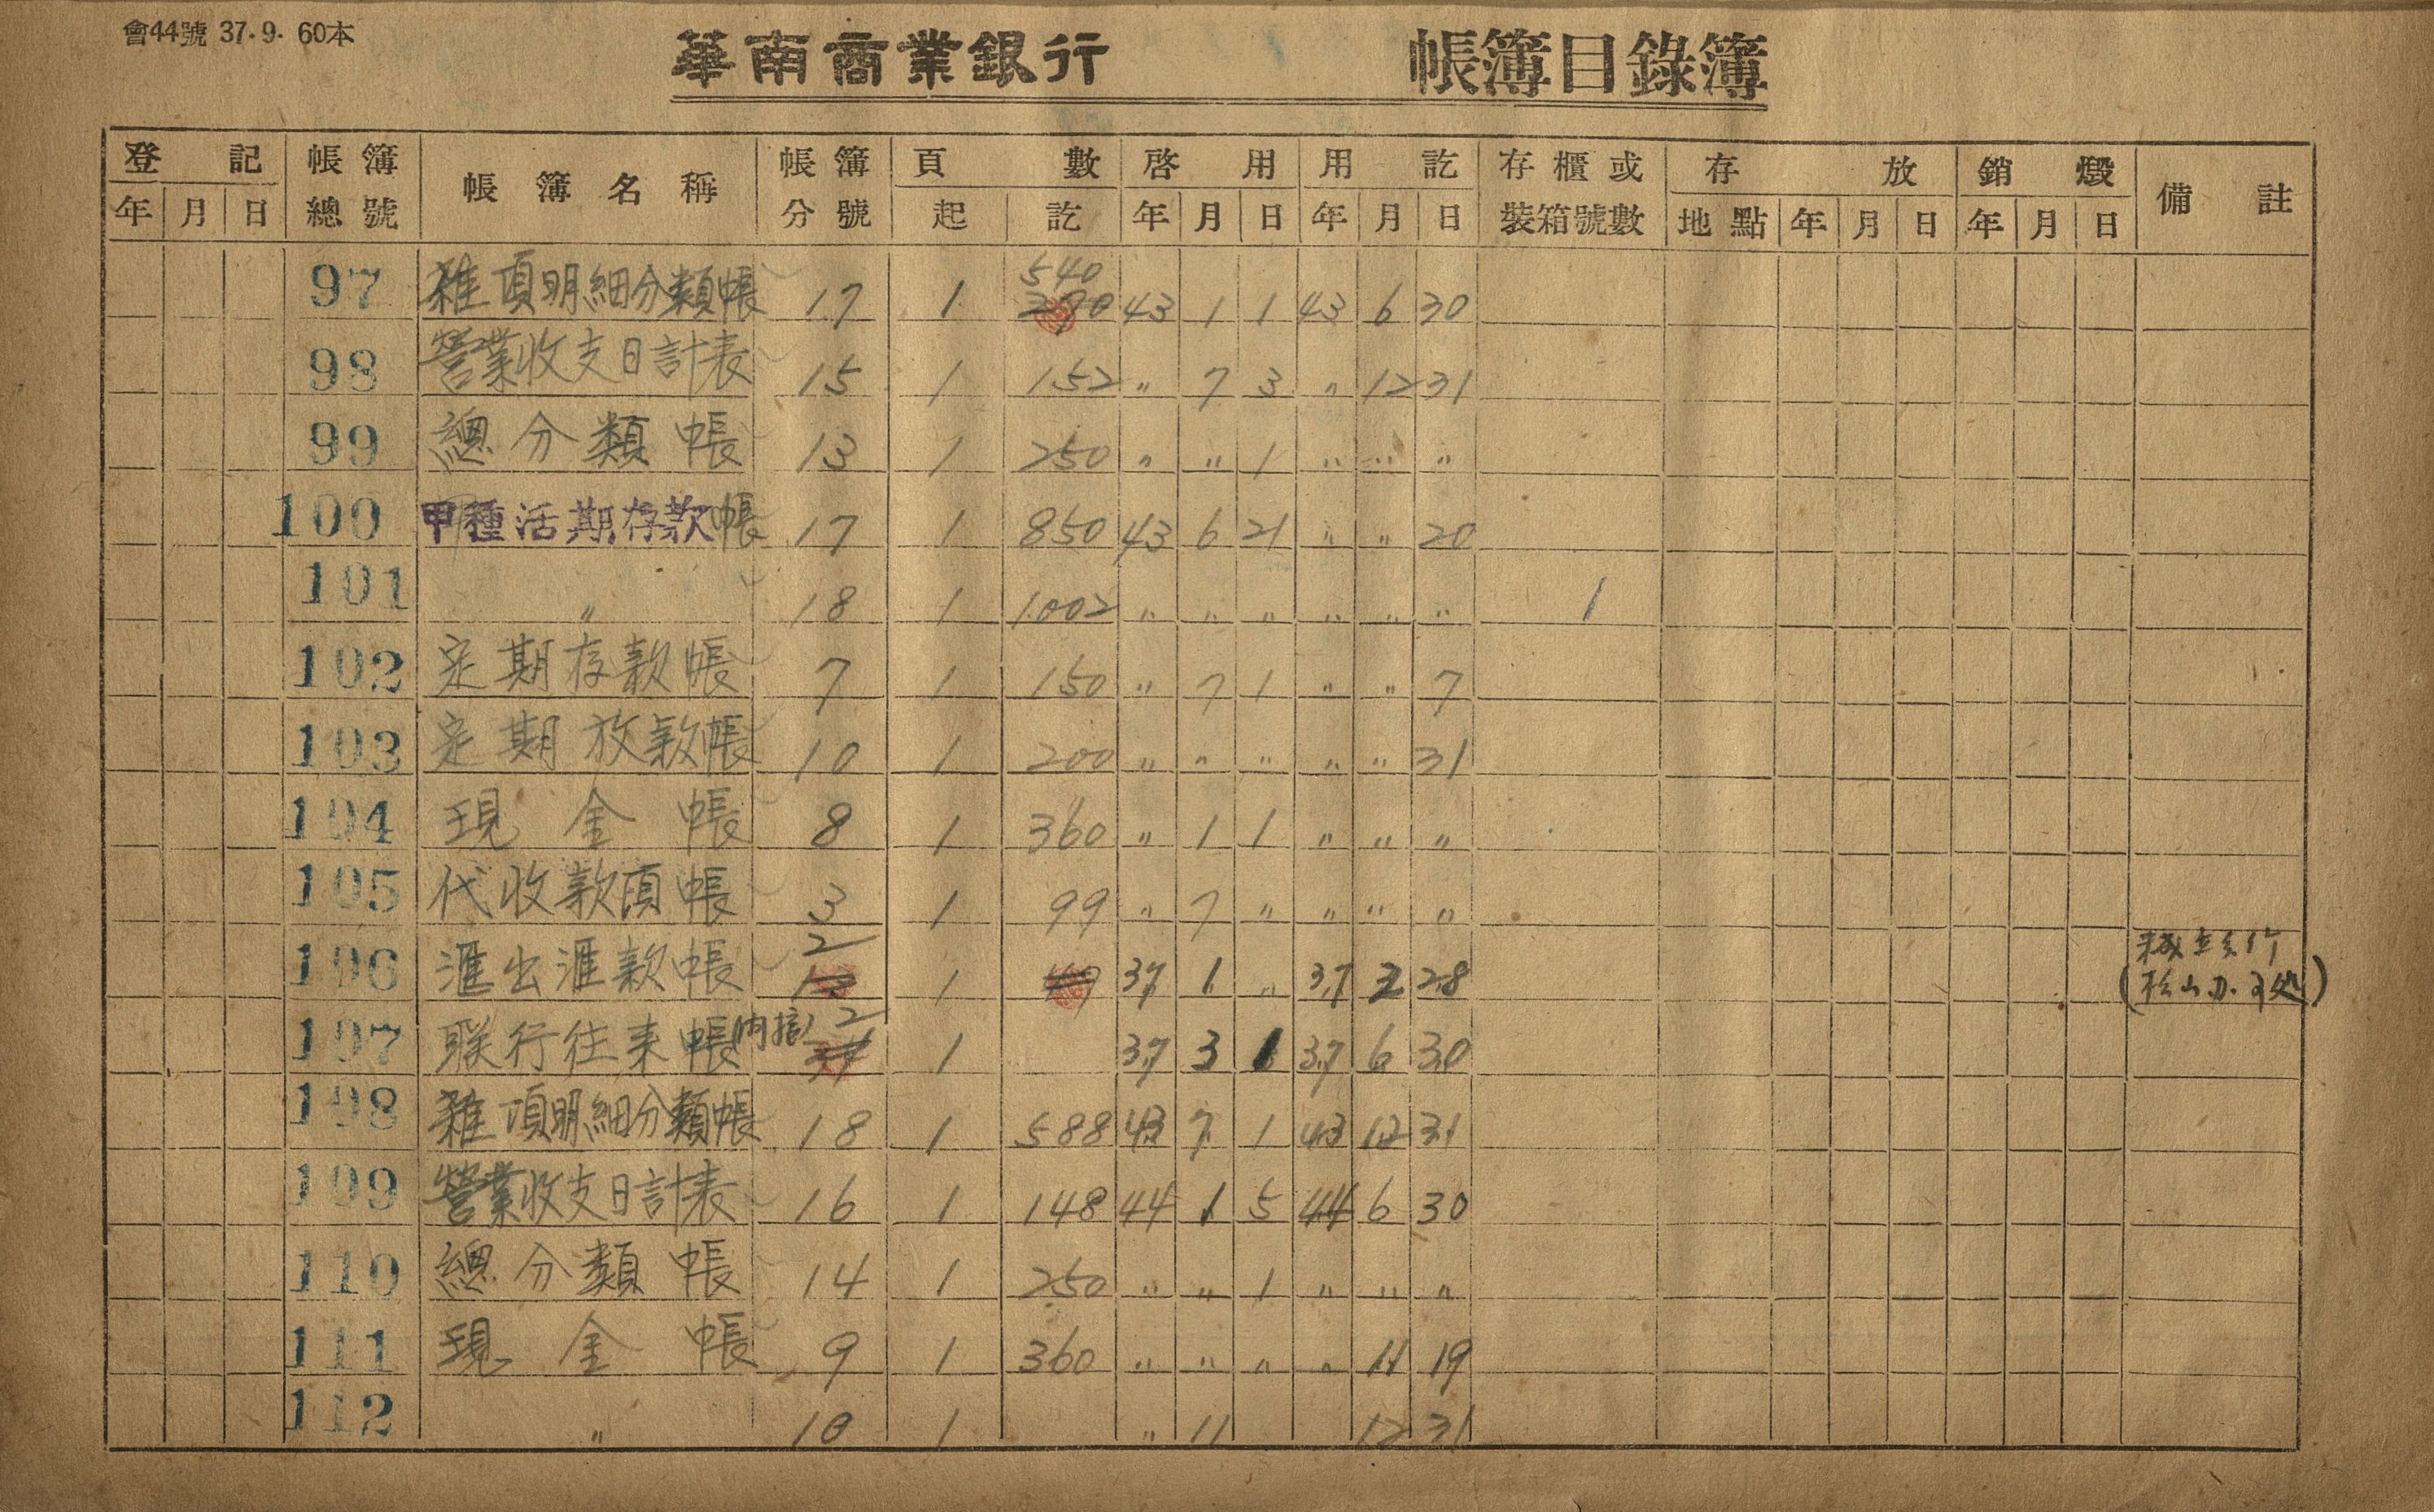 會44號 37.9. 60本
華南商業銀行 帳簿目錄簿
登記 帳簿 帳簿名稱 帳簿 頁數 啓用 用訖 存櫃或 存放 銷燬 備註
年 月 日 總號 分號 起 訖 年 月 日 年 月 日 裝箱號數 地點 年 月 日 年 月 日
540
97 雜項明細分類帳 17 1 43 1 1 43 6 30
98 營業收支日計表 15 1 152 〃 7 3 〃 12 31
99 總分類帳 13 1 250 〃 〃 1 〃 〃 〃
100 甲種活期存款帳 17 1 850 43 6 21 〃 〃 20
101 〃 18 1 1.002 〃 〃 〃 〃 〃 〃 1
102 定期存款帳 7 1 150 〃 7 1 〃 〃 7
103 定期放款帳 10 1 200 〃 〃 〃 〃 〃 31
104 現金帳 8 1 360 〃 1 1 〃 〃 〃
105 代收款項帳 3 1 99 〃 7 〃 〃 〃 〃
106 滙出滙款帳 2 1 37 1 〃 37 2 28
(松山办事処)
107 聯行往来帳 2 1 37 3 1 37 6 30
108 雜項明細分類帳 18 1 588 43 7 1 43 12 31
109 營業收支日計表 16 1 148 44 1 5 44 6 30
110 總分類帳 14 1 250 〃 〃 1 〃 〃 〃
111 現金帳 9 1 360 〃 〃 〃 〃 11 19
112 〃 10 1 〃 11 12 31